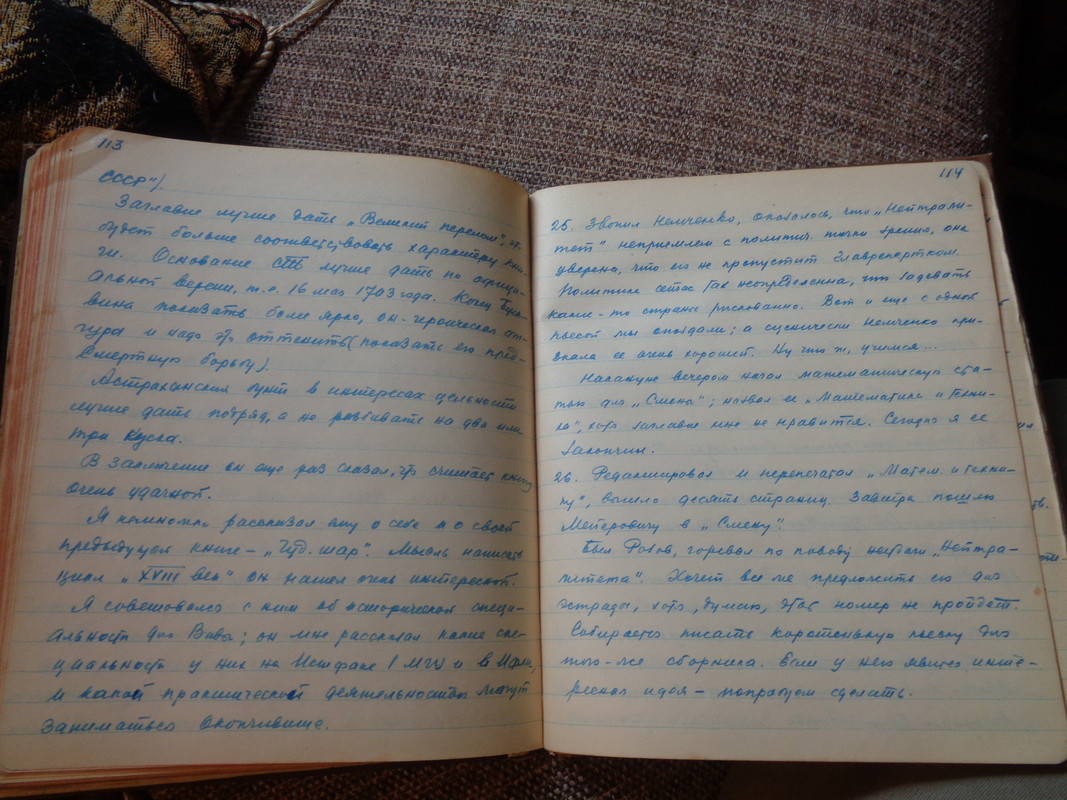 113
СССР").
Заглавие лучше дать „Великий перелом", это
будет больше соответствовать характеру кни-
ги. Основание СПБ лучше дать по офици-
альной версии, т.е. 16 мая 1703 года. Конец Була-
вина показать более ярко, он - героическая фи-
гура и надо это оттенить (показать его пред-
смертную борьбу).
Астраханский бунт в интересах цельности
лучше дать подряд, а не разбивать на два или
три куска.
В заключение он еще раз сказал, что считает книгу
очень удачной.
Я немного рассказал ему о себе и о своей
предыдущей книге - „Чуд. шар". Мысль написать
цикл „XVIII век" он нашел очень интересной.
Я советовался с ним об исторической специ-
альности для Вивы; он мне рассказал какие спе-
циальности у них на Истфаке I МГУ и в Ифли,
и какой практической деятельностью могут
заниматься окончившие.
114
25. Звонил Немченко, оказалось, что „Нейтрали-
тет" неприемлем с политич. точки зрения, она
уверена, что его не пропустит Главрепертком.
Политика сейчас так неопределенна, что задевать
какие-то страны рискованно. Вот и еще с одной
пьесой мы опоздали; а сценически Немченко при-
знала ее очень хорошей. Ну что ж, учимся...
Накануне вечером начал математическую ста-
тью для „Смены"; назвал ее „Математика и техни-
ка", хотя заглавие мне не нравится. Сегодня я ее
закончил.
26. Редактировал и перепечатал „Матем. и техни-
ку", вышло десять страниц. Завтра пошлю
Мейеровичу в „Смену".
Был Розов, горевал по поводу неудачи „Нейтра-
литета". Хочет все же предложить его для
эстрады, хотя, думаю, этот номер не пройдет.
Собирается писать коротенькую пьеску для
того-же сборника. Если у него явится инте-
ресная идея - попробуем сделать.